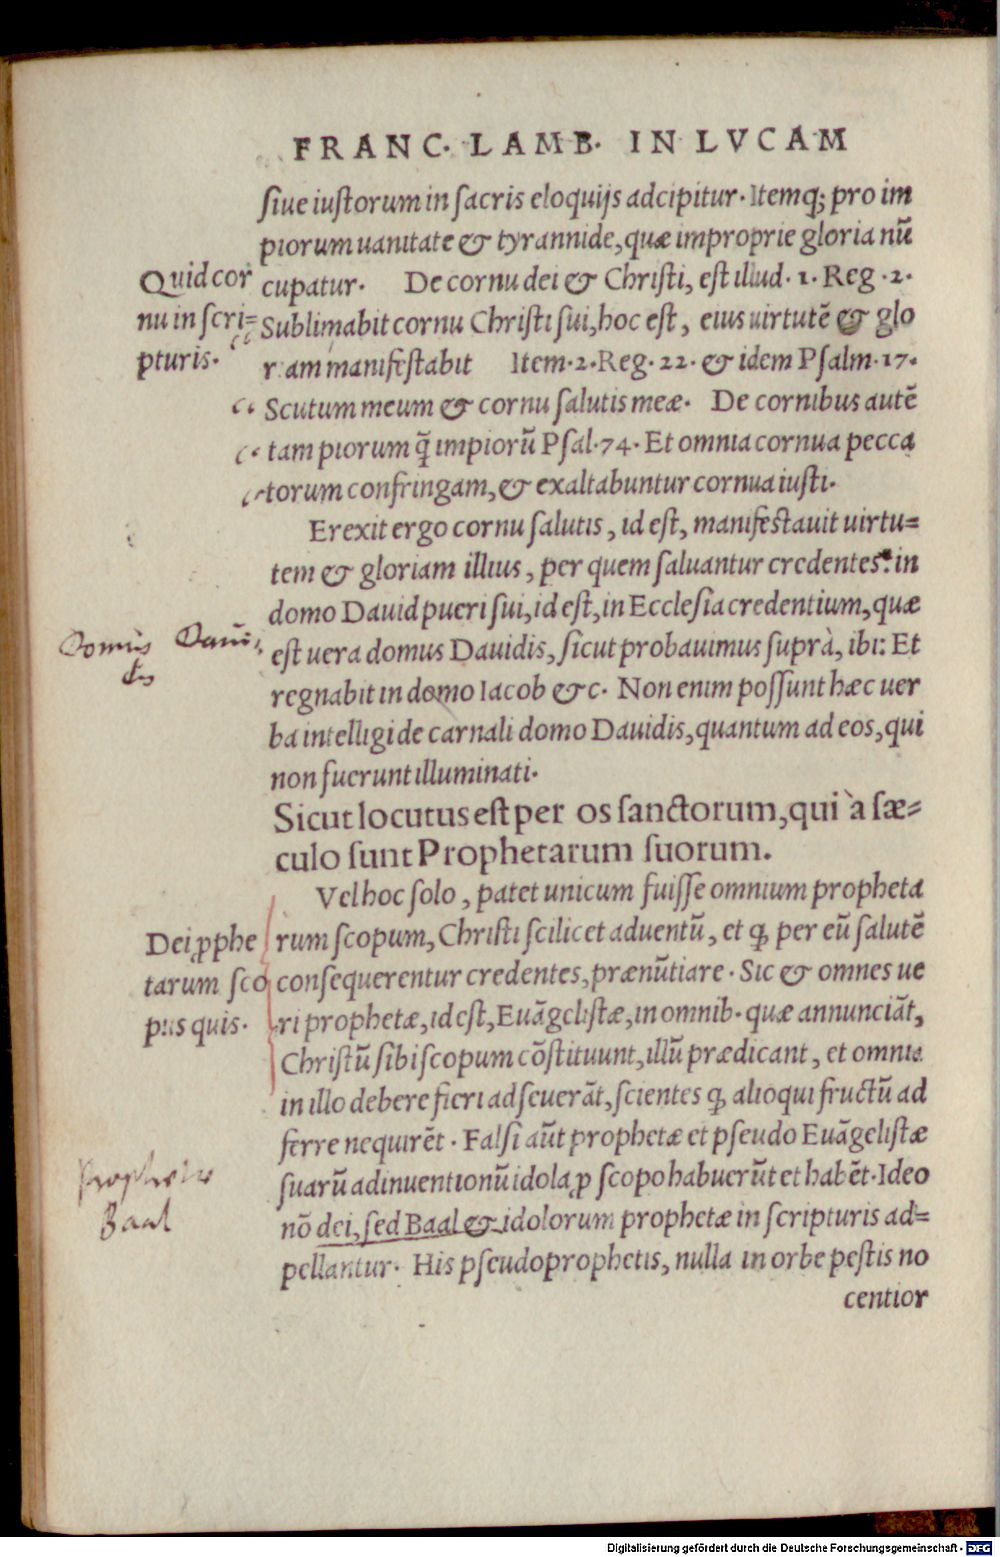 FRANC. LAMB. IN LVCAM
siue iustorum in sacris eloquijs adcipitur. Itemq; pro im
piorum uanitate & tyrannide, quæ improprie gloria nū
Quid cor
nu in scri=
pturis.
cupatur. De cornu dei & Christi, est illud. 1. Reg. 2.
Sublimabit cornu Christi sui, hoc est, eius uirtutē & glo
riam manifestabit Item. 2. Reg. 22. & idem Psalm. 17.
Scutum meum & cornu salutis meæ. De cornibus autē
tam piorum q̄ impiorū Psal. 74. Et omnia cornua pecca
torum confringam, & exaltabuntur cornua iusti.
Erexit ergo cornu salutis, id est, manifestauit uirtu=
tem & gloriam illius, per quem saluantur credentes: in
domo Dauid pueri sui, id est, in Ecclesia credentium, quæ
Domus Daui,
dis
est uera domus Dauidis, sicut probauimus suprà, ibi: Et
regnabit in domo Iacob &c. Non enim possunt hæc uer
ba intelligi de carnali domo Dauidis, quantum ad eos, qui
non fuerunt illuminati.
Sicut locutus est per os sanctorum, qui à sæ=
culo sunt Prophetarum suorum.
Vel hoc solo, patet unicum fuisse omnium propheta
Dei ꝓphe
tarum sco
pus quis.
rum scopum, Christi scilicet aduentū, et ꝙ per eū salutē
consequerentur credentes, prænūtiare. Sic & omnes ue
ri prophetæ, id est, Euāgelistæ, in omnib. quæ annunciāt,
Christū sibi scopum cōstituunt, illū prædicant, et omnia
in illo debere fieri adseuerāt, scientes ꝙ alioqui fructū ad
ferre nequirēt. Falsi aūt prophetæ et pseudo Euāgelistæ
Prophetae
Baal
suarū adinuentionū idola ꝓ scopo habuerūt et habēt. Ideo
nō dei, sed Baal & idolorum prophetæ in scripturis ad=
pellantur. His pseudoprophetis, nulla in orbe pestis no
centior
Digitalisierung gefördert durch die Deutsche Forschungsgemeinschaft - DFG